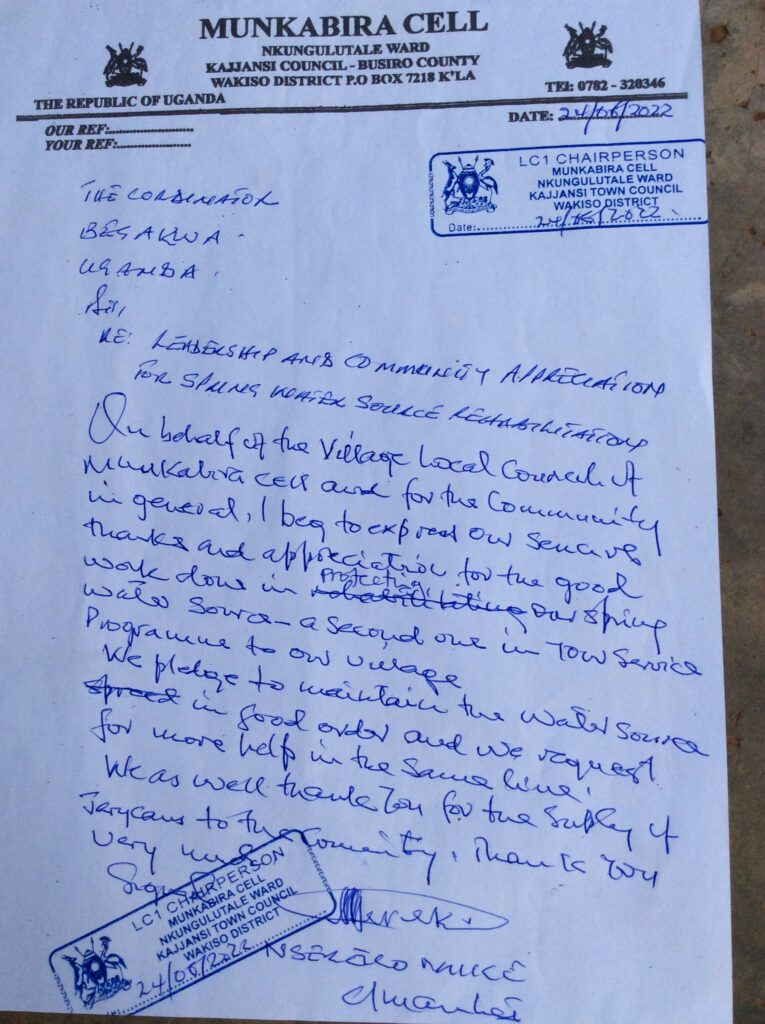 MUNKABIRA CELL
NKUNGULUTALE WARD
KAJJANSI COUNCIL - BUSIRO COUNTY
WAKISO DISTRICT P.O BOX 7218 K'LA
THE REPUBLIC OF UGANDA
TEL: 0782 - 320346
OUR REF:
YOUR REF:
DATE: 24/06/2022
LC1 CHAIRPERSON
MUNKABIRA CELL
NKUNGULUTALE WARD
KAJJANSI TOWN COUNCIL
WAKISO DISTRICT
Date: 24/06/2022
THE CORDINATOR
BEGAKWA.
UGANDA.
Sir,
RE: LEADERSHIP AND COMMUNITY APPRECIATION
FOR SPRING WATER SOURCE REHABILITATION
On behalf of the Village Local Council of
Munkabira cell and for the Community
in general, I beg to express our sencire
thanks and appreciation for the good
work done in protecting our spring
water source - a second one in your service
Programme to our village
We pledge to maintain the water source
in good order and we request
for more help in the same line.
We as well thank you for the supply of
Jerycans to the Comunity. Thank you
very much
LC1 CHAIRPERSON
MUNKABIRA CELL
NKUNGULUTALE WARD
KAJJANSI TOWN COUNCIL
WAKISO DISTRICT
24/06/2022
MIKE